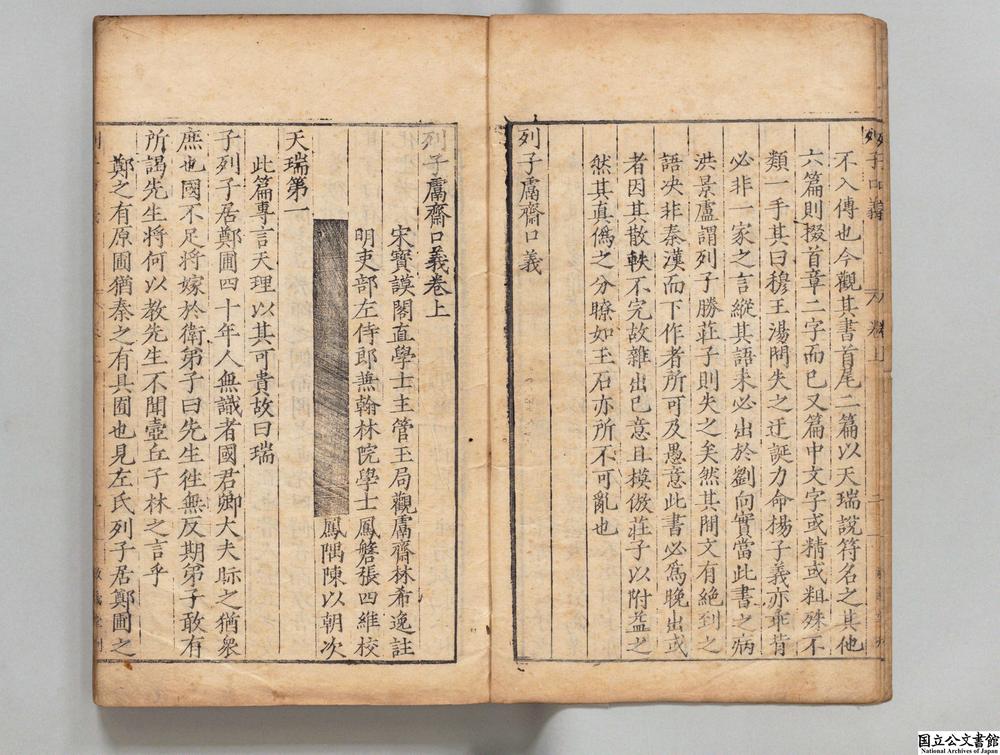 不入傳也今觀其書首尾二篇以天瑞說符名之其他
六篇則掇首章二字而已又篇中文字或精或粗殊不
類一手其曰穆王湯問失之迂誕力命揚子義亦乖背
必非一家之言縱其語未必出於劉向實當此書之病
洪景盧謂列子勝莊子則失之矣然其間文有絕到之
語決非秦漢而下作者所可及愚意此書必爲晚出或
者因其散軼不完故雜出已意且模倣莊子以附益之
然其真僞之分瞭如玉石亦所不可亂也
列子鬳齋口義
列子鬳齋口義卷上
宋寶謨閣直學士主管玉局觀鬳齋林希逸註
明吏部左侍郎兼翰林院學士鳳磐張四維校
鳳隅陳以朝次
天瑞第一
此篇專言天理以其可貴故曰瑞
子列子居鄭圃四十年人無識者國君卿大夫眎之猶衆
庶也國不足將嫁於衛弟子曰先生徃無反期弟子敢有
所謁先生將何以教先生不聞壺丘子林之言乎
鄭之有原圃猶秦之有具囿也見左氏列子居鄭圃之
国立公文書館
National Archives of Japan